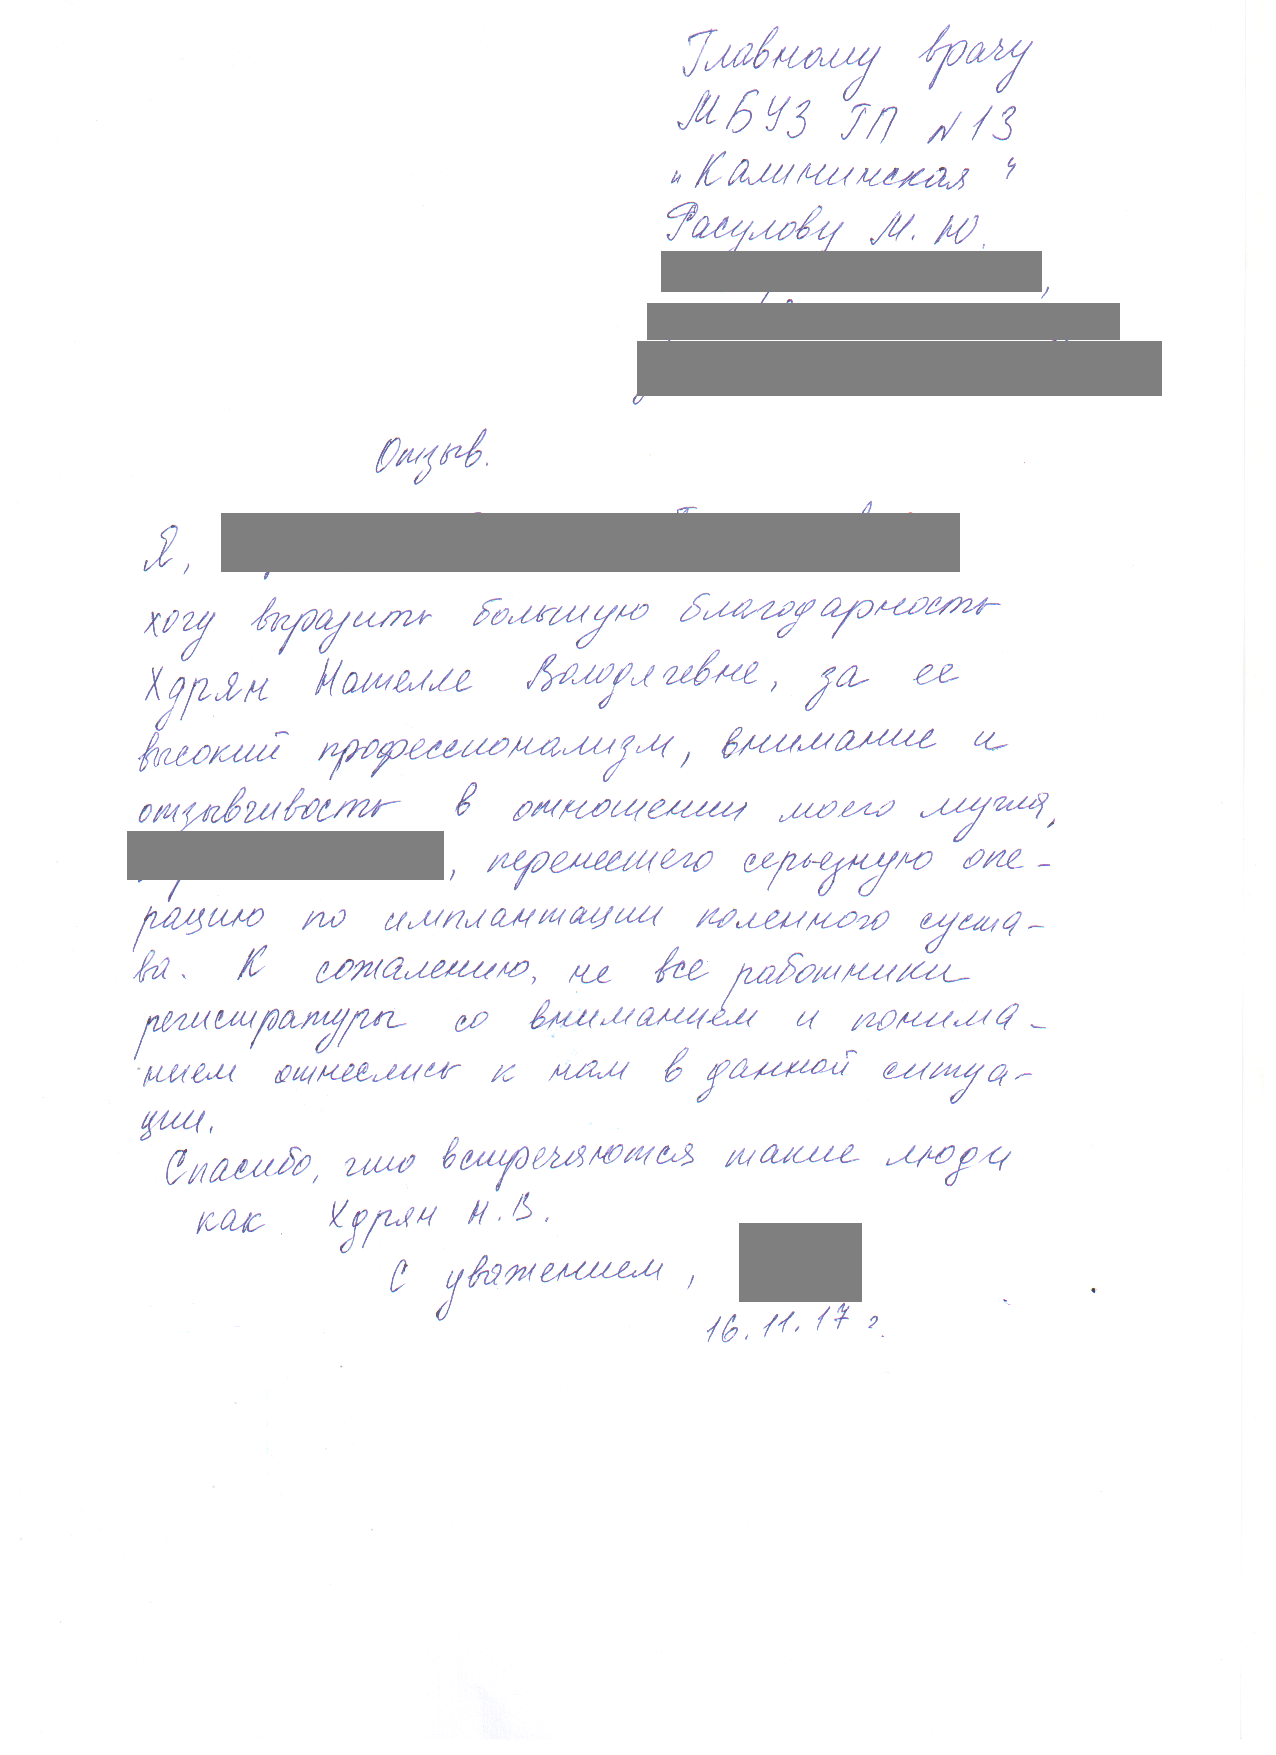 Главному врачу
МБУЗ ГП N13
"Калининская"
Расулову М. Ю.
Отзыв.
Я,
хочу выразить большую благодарность
Хдрян Нателле Володяевне, за ее
высокий профессионализм, внимание и
отзывчивость в отношении моего мужа,
, перенесшего серьезную опе-
рацию по имплантации коленного суста-
ва. К сожалению, не все работники
регистратуры со вниманием и понима-
нием отнеслись к нам в данной ситуа-
ции.
Спасибо, что встречаются такие люди
как Хдрян Н.В.
С уважением,
16.11.17 г.